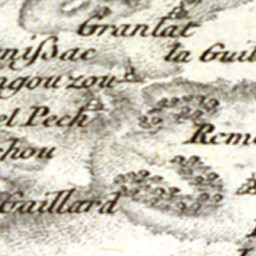 Granlat
nissac
la Guil
agouzou
el Pech
Rem
chou
Gaillard